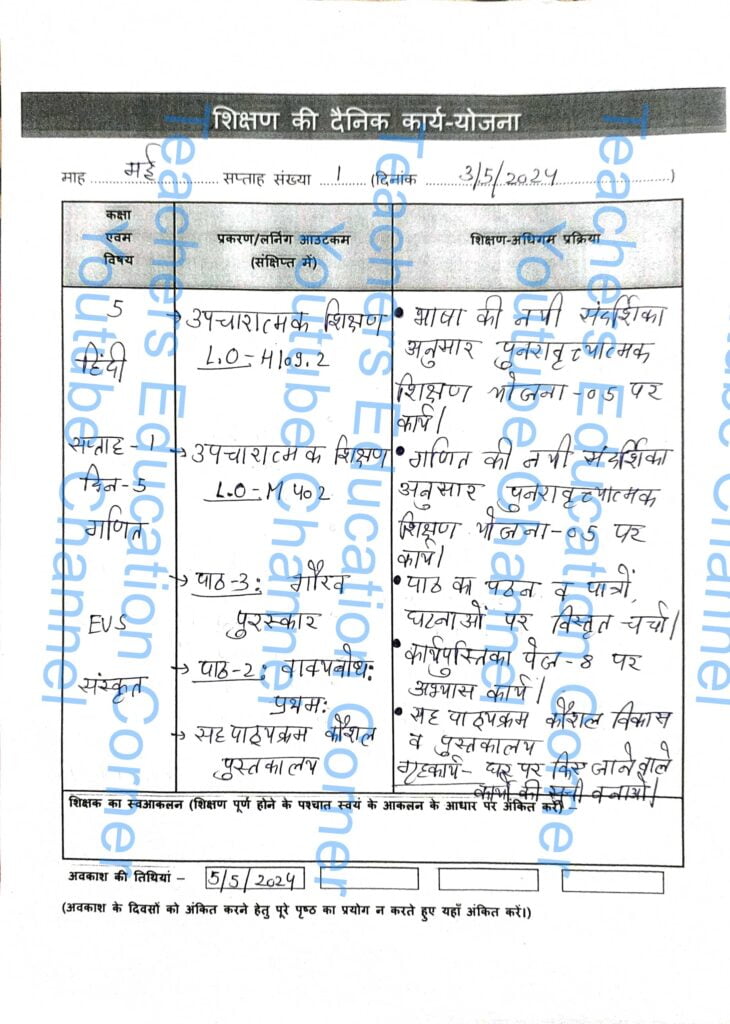 शिक्षण की दैनिक कार्य-योजना
माह मई सप्ताह संख्या 1 (दिनांक 3/5/2024)
कक्षा
एवम
विषय
प्रकरण/लर्निंग आउटकम
(संक्षिप्त में)
शिक्षण-अधिगम प्रक्रिया
5
हिंदी
सप्ताह - 1
दिन-5
गणित
EVS
संस्कृत
→ उपचारात्मक शिक्षण
L.O-H109.2
→ उपचारात्मक शिक्षण
L.O-M402
→ पाठ-3: गौरव
पुरस्कार
→ पाठ-2: वाक्यबोध:
प्रथम:
→ सह पाठ्यक्रम कौशल
पुस्तकालय
• भाषा की नयी संदर्शिका
अनुसार पुनरावृत्यात्मक
शिक्षण योजना-05 पर
कार्य।
• गणित की नयी संदर्शिका
अनुसार पुनरावृत्यात्मक
शिक्षण योजना-05 पर
कार्य।
• पाठ का पठन व पात्रों,
घटनाओं पर विस्तृत चर्चा।
• कार्यपुस्तिका पेज-8 पर
अभ्यास कार्य।
• सह पाठ्यक्रम कौशल विकास
व पुस्तकालय
गृहकार्य- घर पर किए जाने वाले
कार्यों की सूची बनाओ।
शिक्षक का स्वआकलन (शिक्षण पूर्ण होने के पश्चात स्वयं के आकलन के आधार पर अंकित करें) -
अवकाश की तिथियां - 5/5/2024
(अवकाश के दिवसों को अंकित करने हेतु पूरे पृष्ठ का प्रयोग न करते हुए यहाँ अंकित करें।)
Teachers Education Corner
Youtube Channel
Teachers Education Corner
Youtube Channel
Teachers Education Corner
Youtube Channel